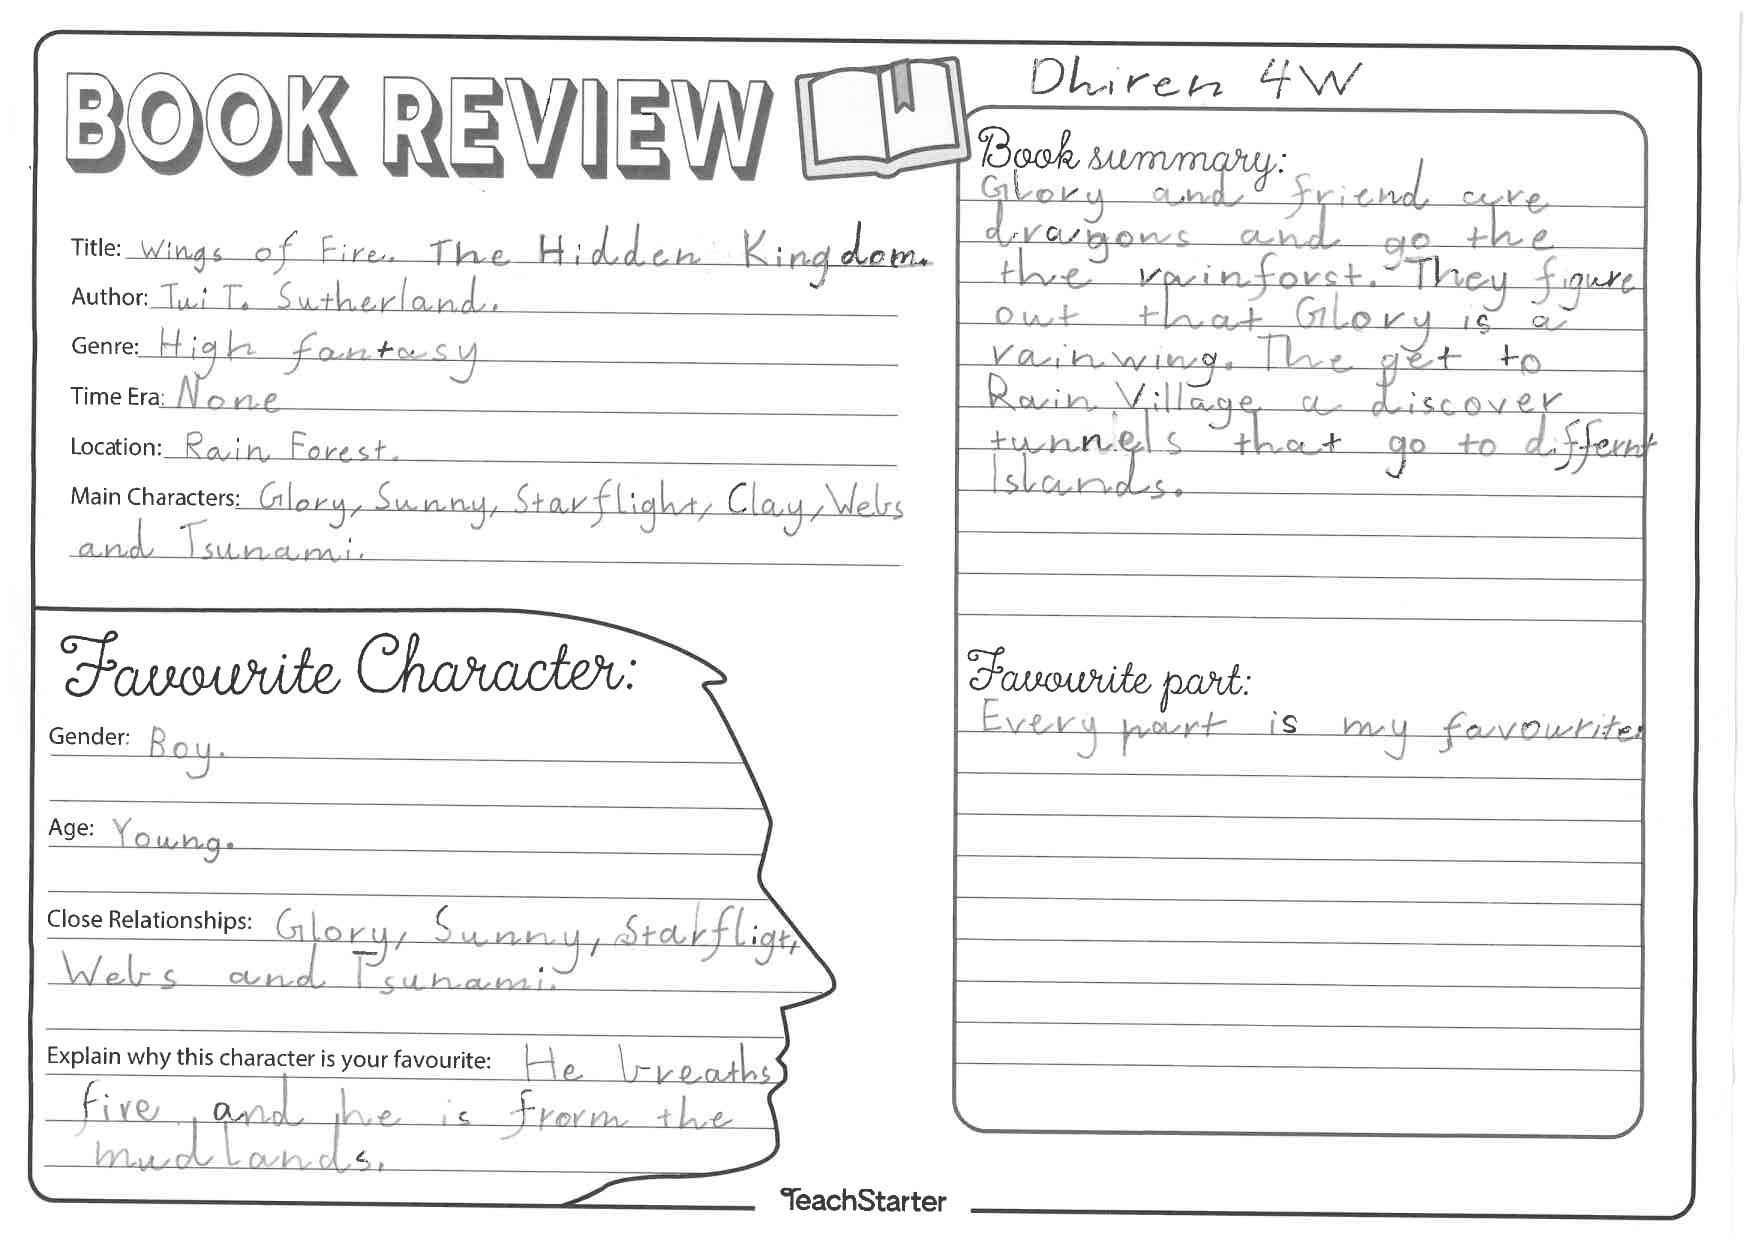 BOOK REVIEW
Title: Wings of Fire. The Hidden Kingdom.
Author: Tui T. Sutherland.
Genre: High fantasy
Time Era: None
Location: Rain Forest.
Main Characters: Glory, Sunny, Starflight, Clay, Webs
and Tsunami.
Favourite Character:
Gender: Boy.
Age: Young.
Close Relationships: Glory, Sunny, Starfligt,
Webs and Tsunami.
Explain why this character is your favourite: He breaths
fire and he is frorm the
mudlands.
Dhiren 4W
Book summary:
Glory and friend are
dragons and go the
the rainforst. They figure
out that Glory is a
rainwing. The get to
Rain Village a discover
tunnels that go to differnt
Islands.
Favourite part:
Every part is my favourite.
TeachStarter